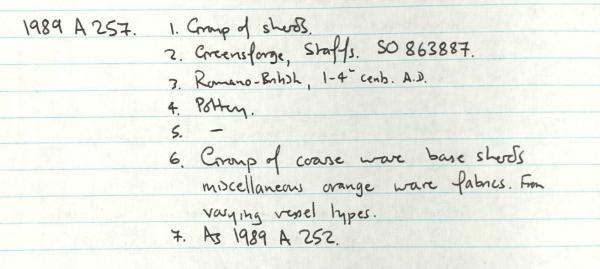 1989 A 257. 1. Group of sherds.
2. Greensforge, Staffs. SO 863887.
3. Romano-British, 1-4th cent. A.D.
4. Pottery.
5. –
6. Group of coarse ware base sherds
miscellaneous orange ware fabrics. From
varying vessel types.
7. As 1989 A 252.